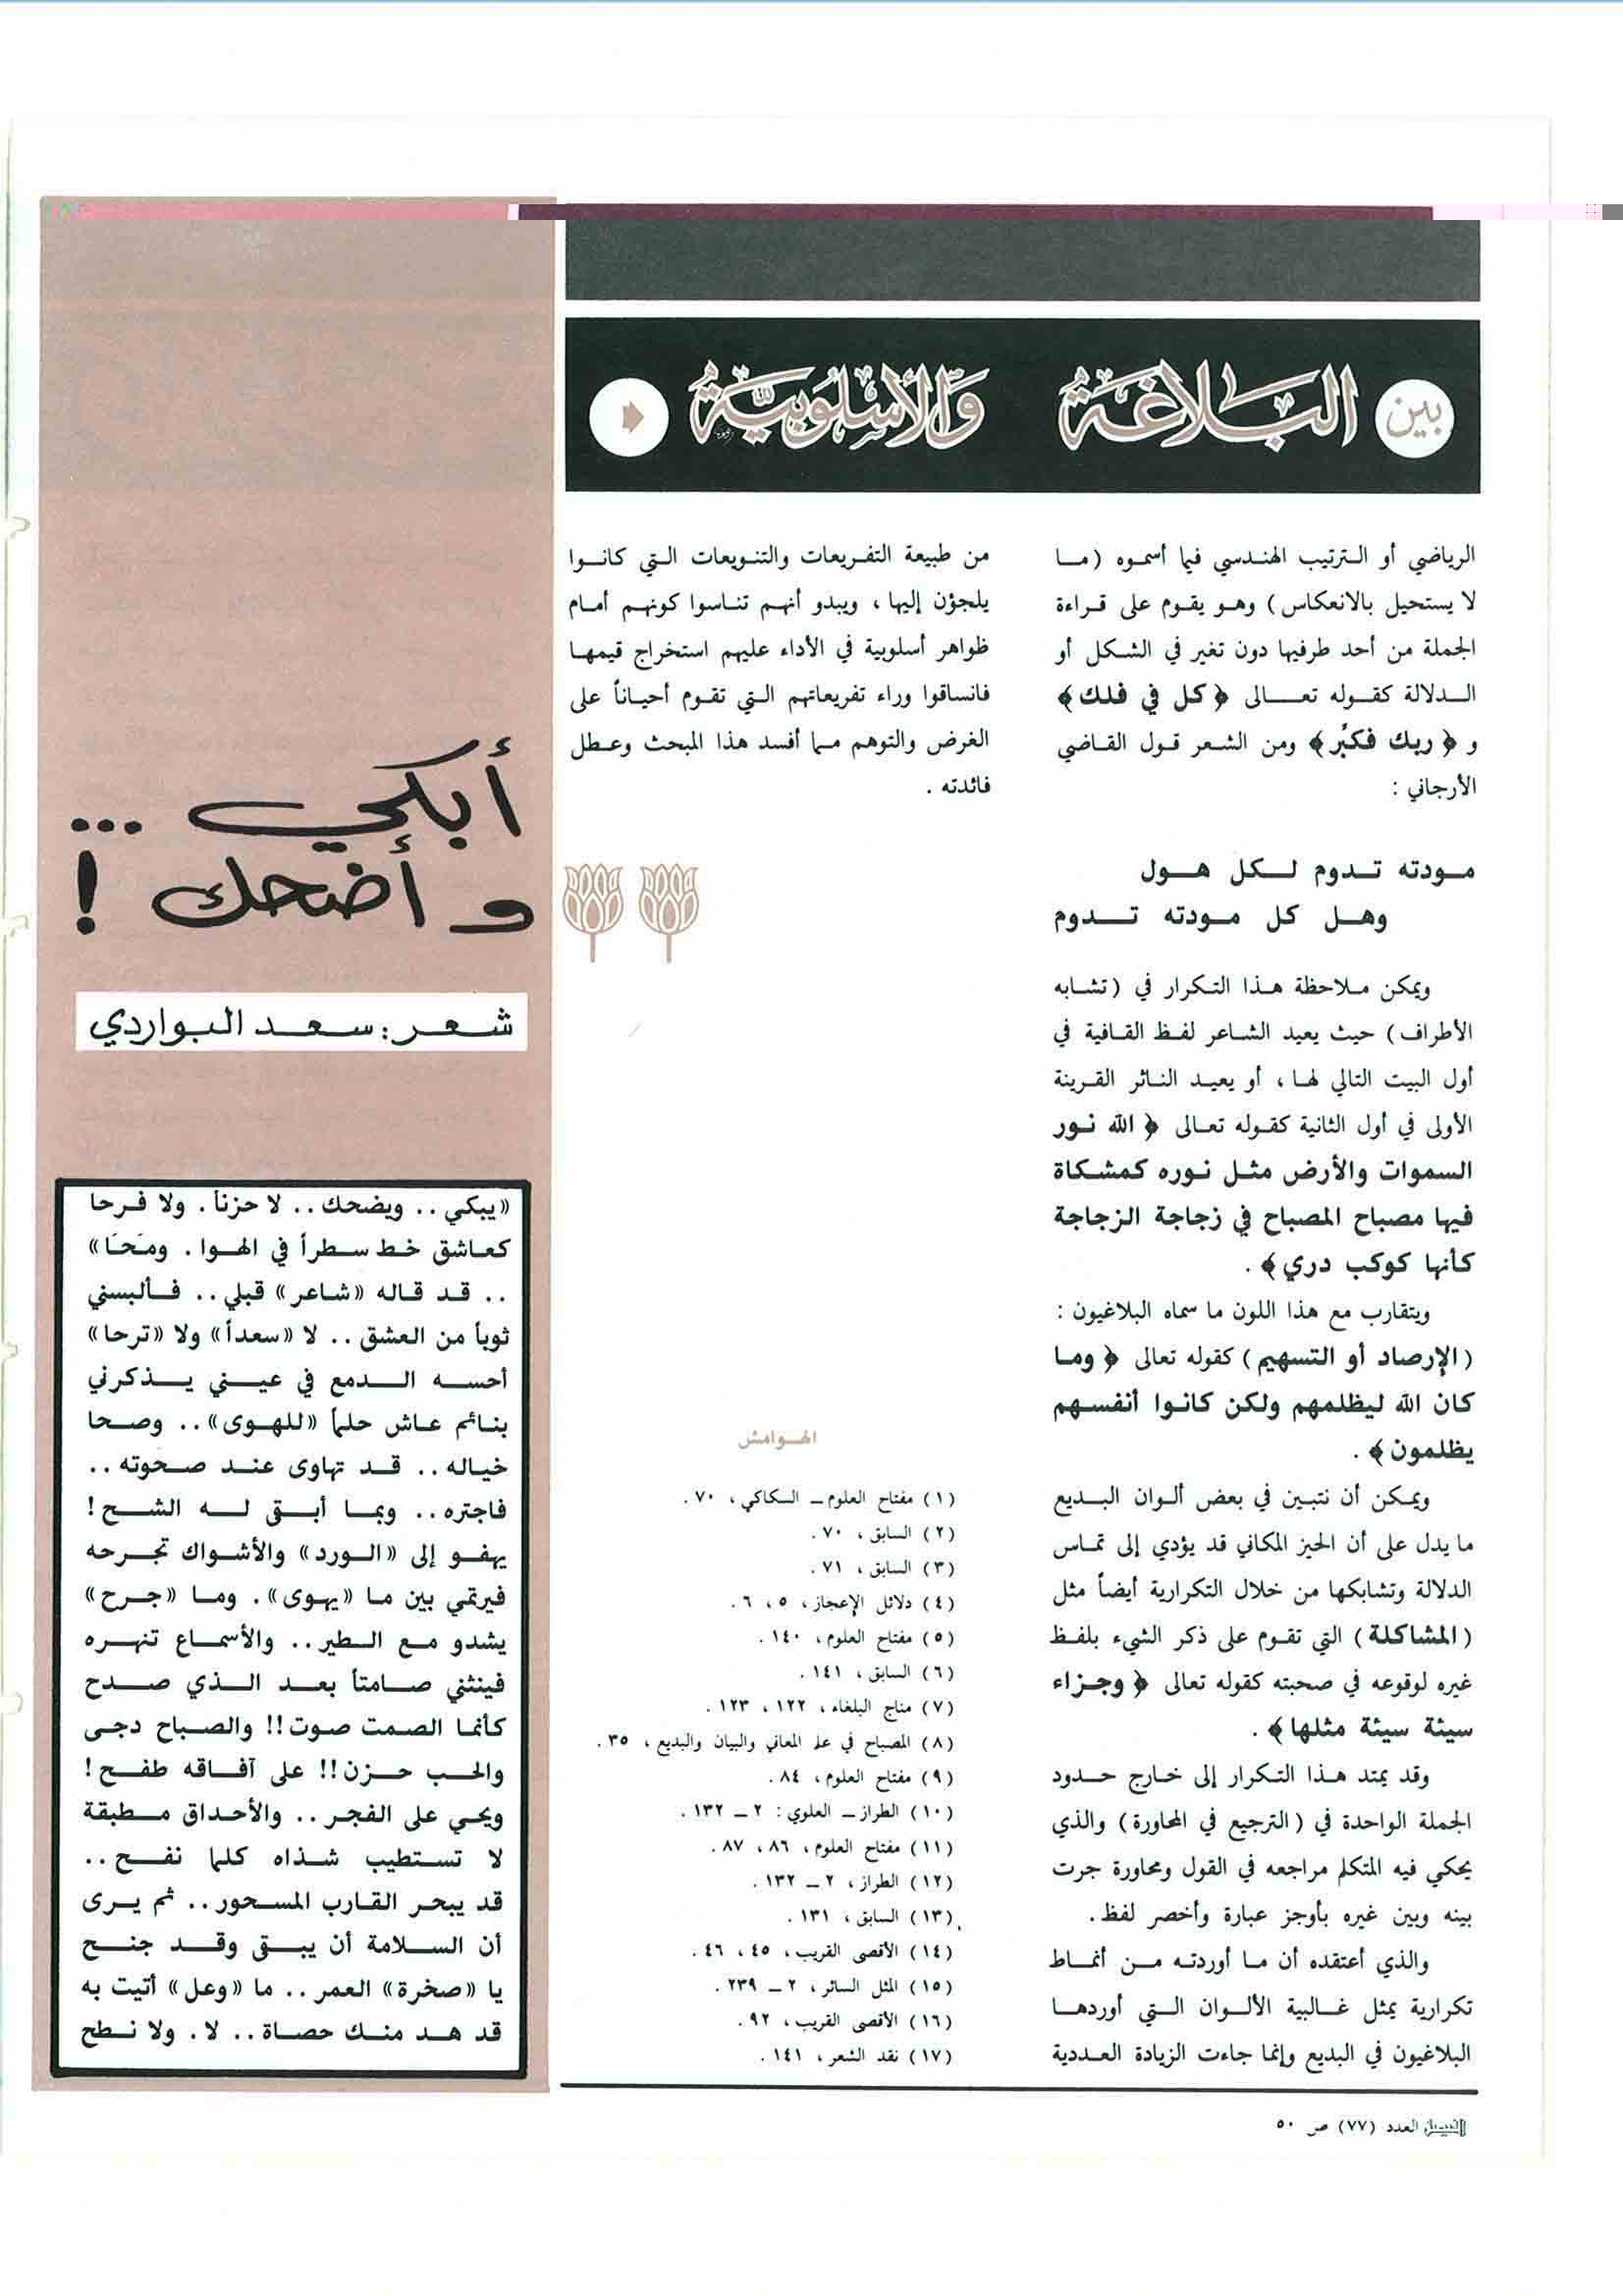 بين البلاغة والأسلوبية
الرياضي أو الترتيب الهندسي فيما أسموه (ما
لا يستحيل بالانعكاس) وهو يقوم على قراءة
الجملة من أحد طرفيها دون تغير في الشكل أو
الدلالة كقوله تعالى ﴿كل في فلك﴾
و ﴿ربك فكبّر﴾ ومن الشعر قول القاضي
الأرجاني :
مودته تدوم لكل هول
وهل كل مودته تدوم
ويمكن ملاحظة هذا التكرار في (تشابه
الأطراف) حيث يعيد الشاعر لفظ القافية في
أول البيت التالي لها، أو يعيد الناثر القرينة
الأولى في أول الثانية كقوله تعالى ﴿الله نور
السموات والأرض مثل نوره كمشكاة
فيها مصباح المصباح في زجاجة الزجاجة
كأنها كوكب دري﴾.
ويتقارب مع هذا اللون ما سماه البلاغيون :
(الإرصاد أو التسهيم) كقوله تعالى ﴿وما
كان الله ليظلمهم ولكن كانوا أنفسهم
يظلمون﴾.
ويمكن أن نتبين في بعض ألوان البديع
ما يدل على أن الحيز المكاني قد يؤدي إلى تماس
الدلالة وتشابكها من خلال التكرارية أيضاً مثل
(المشاكلة) التي تقوم على ذكر الشيء بلفظ
غيره لوقوعه في صحبته كقوله تعالى ﴿وجزاء
سيئة سيئة مثلها﴾.
وقد يمتد هذا التكرار إلى خارج حدود
الجملة الواحدة في (الترجيع في المحاورة) والذي
يحكي فيه المتكلم مراجعه في القول ومحاورة جرت
بينه وبين غيره بأوجز عبارة وأخصر لفظ.
والذي أعتقده أن ما أوردته من أنماط
تكرارية يمثل غالبية الألوان التي أوردها
البلاغيون في البديع وإنما جاءت الزيادة العددية
من طبيعة التفريعات والتنويعات التي كانوا
يلجؤن إليها، ويبدو أنهم تناسوا كونهم أمام
ظواهر أسلوبية في الأداء عليهم استخراج قيمها
فانساقوا وراء تفريعاتهم التي تقوم أحياناً على
الغرض والتوهم مما أفسد هذا المبحث وعطل
فائدته .
الهوامش
(١) مفتاح العلوم ـ السكاكي، ٧٠.
(٢) السابق، ٧٠.
(٣) السابق، ٧١.
(٤) دلائل الإعجاز، ٥، ٦.
(٥) مفتاح العلوم، ١٤٠.
(٦) السابق، ١٤١.
(٧) مناج البلغاء، ١٢٢، ١٢٣.
(٨) المصباح في علم المعاني والبيان والبديع، ٣٥.
(٩) مفتاح العلوم، ٨٤.
(١٠) الطراز ـ العلوي: ٢ ـ ١٣٢.
(١١) مفتاح العلوم، ٨٦، ٨٧.
(١٢) الطراز، ٢ ـ ١٣٢.
(١٣) السابق، ١٣١.
(١٤) الأقصى القريب، ٤٥، ٤٦.
(١٥) المثل السائر، ٢ ـ ٢٣٩.
(١٦) الأقصى القريب، ٩٢.
(١٧) نقد الشعر، ١٤١.
أبكي ...
وأضحك !
شعر: سعد البواردي
«يبكي.. ويضحك.. لا حزناً. ولا فرحا
كعاشق خط سطراً في الهوا. ومَحَا»
.. قد قاله «شاعر» قبلي.. فألبسني
ثوباً من العشق.. لا «سعداً» ولا «ترحا»
أحسه الدمع في عيني يذكرني
بنائم عاش حلماً «للهوى».. وصحا
خياله.. قد تهاوى عند صحوته..
فاجتره.. وبما أبق له الشح!
يهفو إلى «الورد» والأشواك تجرحه
فيرتمي بين ما «يهوى». وما «جرح»
يشدو مع الطير.. والأسماع تنهره
فينثني صامتاً بعد الذي صدح
كأنما الصمت صوت!! والصباح دجى
والحب حزن!! على آفاقه طفح!
ويحي على الفجر.. والأحداق مطبقة
لا تستطيب شذاه كلما نفح..
قد يبحر القارب المسحور.. ثم يرى
أن السلامة أن يبق وقد جنح
يا «صخرة» العمر.. ما «وعل» أتيت به
قد هد منك حصاة.. لا. ولا نطح
الفيصل العدد (٧٧) ص ٥٠